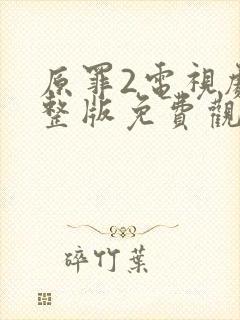 原罪2電視劇
整版免費觀
碎竹葉